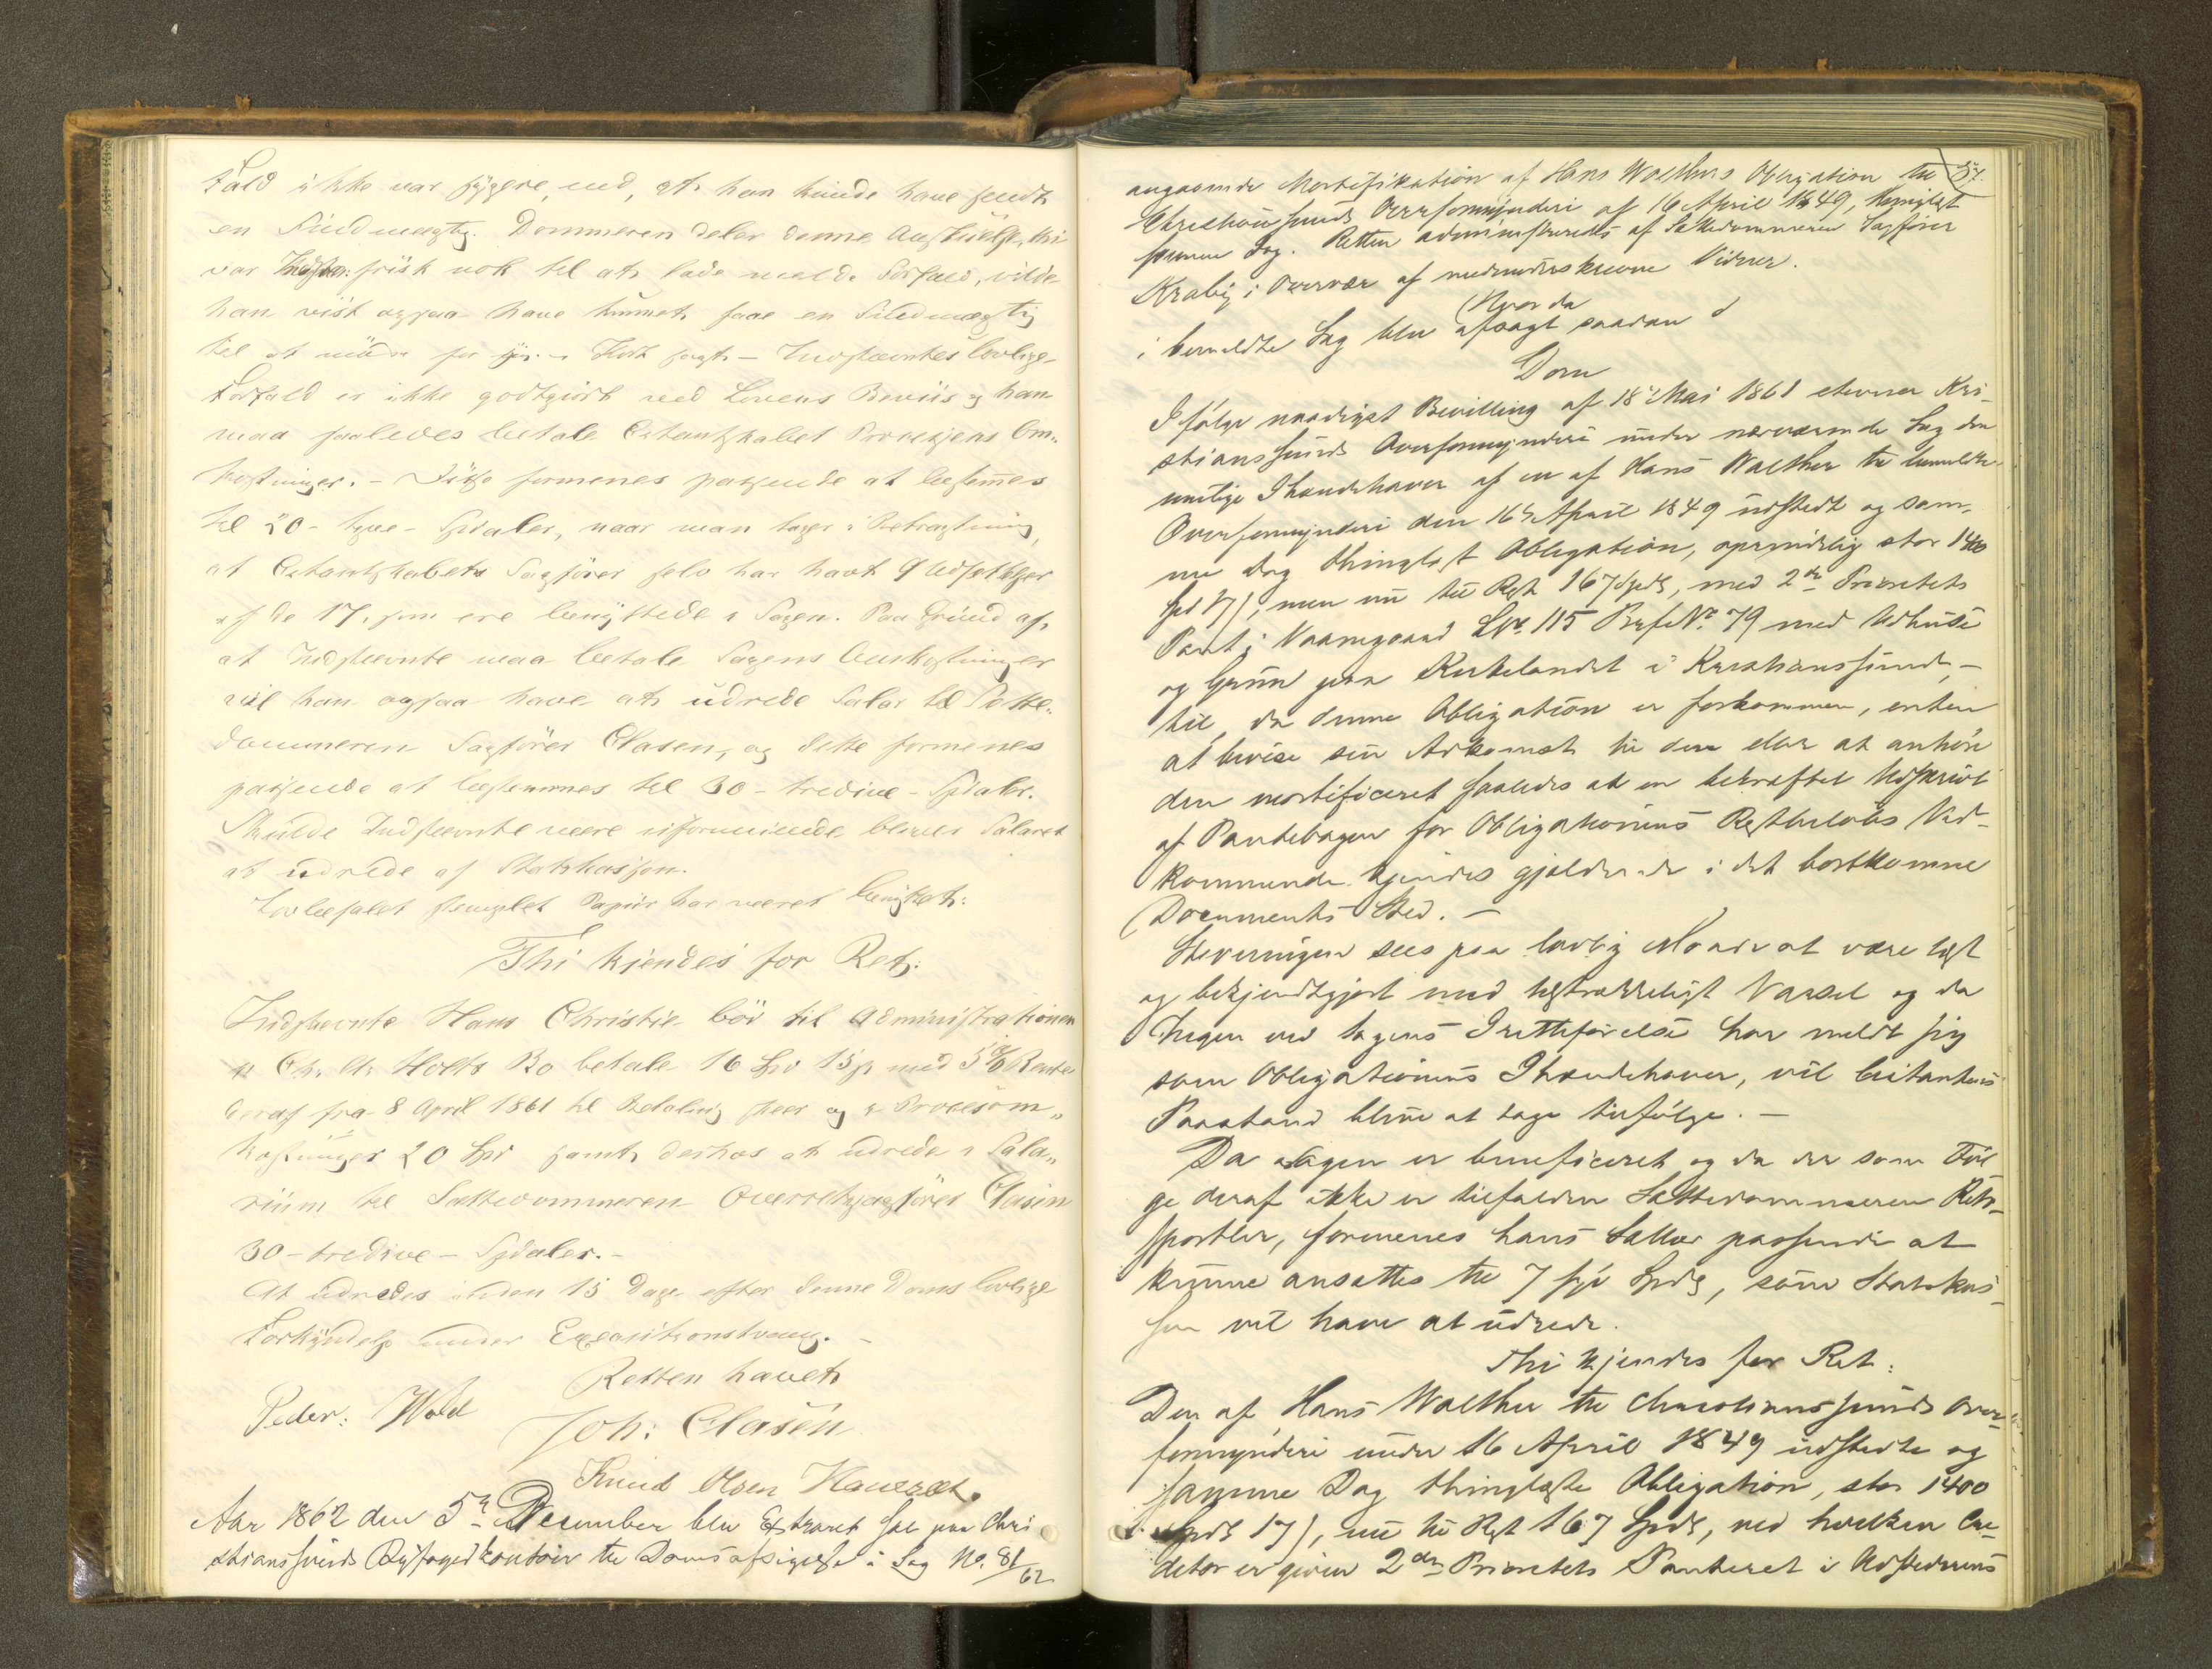 fald ikke var sygere end, at han kunde have sendt
en Fuldmægtig. Dommeren deler denne Anskuelse, thi
var Indst: frisk nok til at lade melde Forfald, vilde
han vist ogsaa have kunnet faae en Fuldmægtig
til at møde for sig. – Kort sagt – Indstevntes lovlige
Forfald er ikke godtgjort ved Lovens Beviis og han
maa saaledes betale Citantskabet Processens Om-
kostninger. – Disse formenes passende at bestemmes
til 20 – tyve – Spdaler, naar man tager i Betragtning,
at Citantskabets Sagfører selv har havt 9 Udsættelser
af de 17, som ere benyttede i Sagen. Paa Grund af,
at Indstevnte maa betale Sagens Omkostninger
vil han ogsaa have at udrede Salær til Sætte-
dommeren Sagfører Clasen, og dette formenes
passende at bestemmes til 30 – tredive – Spdaler.
Skulde Indstevnte være uformuende bliver Salæret
at udrede af Statskassen.
Lovbefalet stemplet Papiir har været benyttet:
Thi kjendes for Ret:
Indstevnte Hans Christie bør til Administrationen
i Ch. A. Holts Bo betale 16 Spd 15 s med 5% Renter
deraf fra 8 April 1861 til Betaling skeer og i Procesom-
kostninger 20 Spd samt derhos at udrede i Sala-
rium til Sættedommeren Overretssagfører Clasen
30 – tredive – Spdaler. –
At udredes inden 15 Dage efter denne Doms lovlige
Forkyndelse under Executionstvang. –
Retten hævet
Peder: Wold
Joh: Clasen
Knud Olsen
Aar 1862 den 5te December blev Extraret sat paa Chri
stianssunds Byfogedkontoir til Domsafsigelse i Sag No. 81/62
angaaende Mortifikation af Hans Walthers Obligation til
Christianssunds Overformynderi af 16 April 1849, thinglæst
samme Dag. Retten administreredes af Sættedommeren Sagfører
Krabÿ i Overvær af medunderskrevne Vidner.
Hvorda
i bemeldte Sag blev afsagt saadan
Dom
Ifølge naadigst Bevilling af 18 Mai 1861 stevner Kri-
stianssunds Overformynderi under nærværende Sag den
mulige Ihændehaver af en af Hans Walther til bemeldte
Overformynderi den 16 April 1849 udstedt og sam-
me Dag thinglæst Obligation, oprindelig stor 1400
Spd 17), men nu til Rest 167 Spd, med 2den Prioritets
Pant i Vaanegaard LNo 115 No 79 med Udhuse
og Grund paa Kirkelandet i Kristianssund, –
til, da denne Obligation er forkommen, enten
at bevise sin Adkomst til den eller at anhøre
den mortificeret saaledes at en bekræftet Udskrivt
af Pantebogen for Obligationens Restbeløbs Ved-
kommende kjendes gjeldende i det bortkomne
Documents Sted. –
Stevningen sees paa lovlig Maade at være læst
og bekjendtgjort med tilstrækkeligt Varsel og da
Ingen ved Sagens Iretteførelse har meldt sig
som Obligationens Ihændehaver, vil Citantens
Paastand blive at tage tilfølge. –
Da Sagen er beneficeret og da der som Føl-
ge deraf ikke er tilfalden Sættedommeren Rets-
sportler, formenes hans Sallær passende at
kunne ansættes til 7 syv Spd, som Statskas-
sen vil have at udrede.
Thi kjendes for Ret:
Den af Hans Walther til Christianssunds Over-
formynderi under 16 April 1849 udstedte og
samme Dag thinglæste Obligation, stor 1400
Spd 17), nu til Rest 167 Spd, ved hvilken Cre-
ditor er given 2den Prioritets Panteret i Udstederens